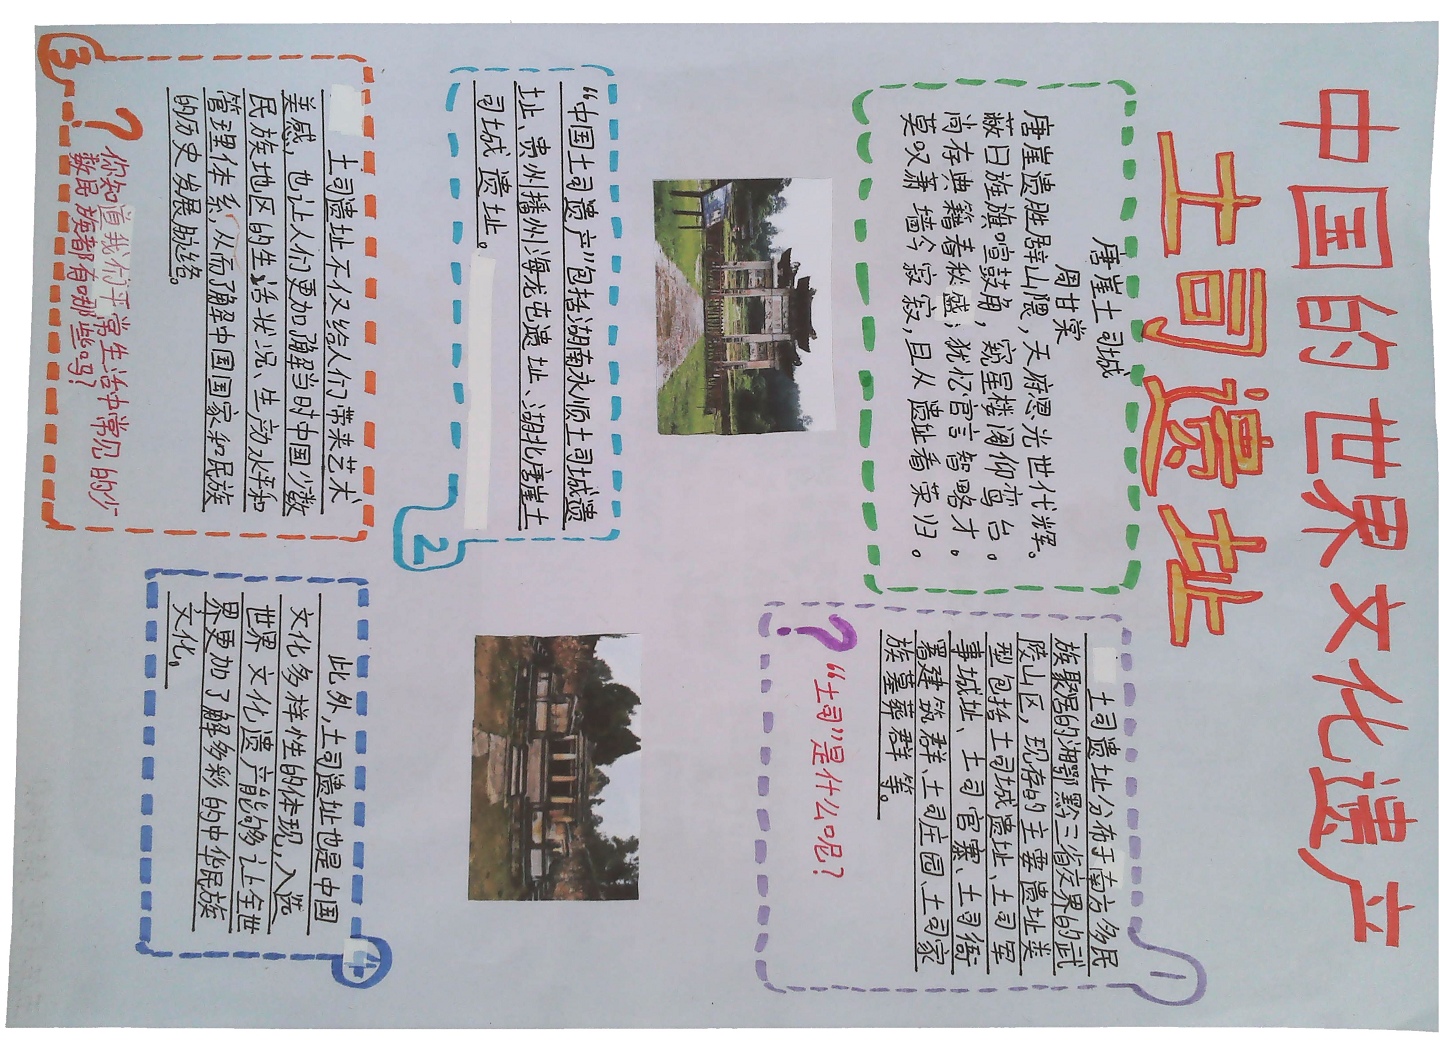 中国的世界文化遗产
土司遗址
唐崖土司城
周甘棠
唐崖遗胜居山隈，天府恩光世代辉。
蔽日旌旗喧鼓角，窥星楼阁仰鸾台。
尚存典籍春秋盛，犹忆言言智略才。
莫叹萧墙今寂寂，且从遗址看荣归。
1
土司遗址分布于南方多民
族聚居的湘鄂黔三省交界的武
陵山区，现存的主要遗址类
型包括土司城遗址、土司军
事城址、土司官寨、土司衙
署建筑群、土司庄园、土司家
族墓葬群等。
？“土司”是什么呢？
2
“中国土司遗产”包括湖南永顺土司城遗
址、贵州播州海龙屯遗址、湖北唐崖土
司城遗址。
3
土司遗址不仅给人们带来艺术
美感，也让人们更加了解当时中国少数
民族地区的生活状况、生动水平和
管理体系，从而了解中国国家和民族
的历史发展脉络。
？你知道我们平常生活中常见的少
数民族都有哪些吗？
4
此外，土司遗址也是中国
文化多样性的体现，入选
世界文化遗产能够让全世
界更加了解多彩的中华民族
文化。